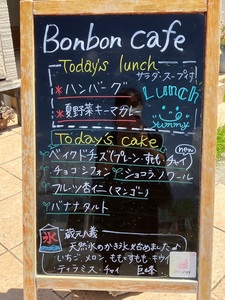 Bonbon Cafe
Today's lunch
サラダ・スープ付
*ハンバーグ
*夏野菜キーマカレー
Lunch
yummy
Today's cake
ベイクドチーズ(プレーン・すもも・チャイ) new
チョコシフォン ショコラノワール
フルーツ杏仁(マンゴー)
バナナタルト
氷 蔵元八義
天然氷のかき氷始めました♪
いちご、メロン、もも・すもも・キウイ
ティラミス・チャイ 巨峰